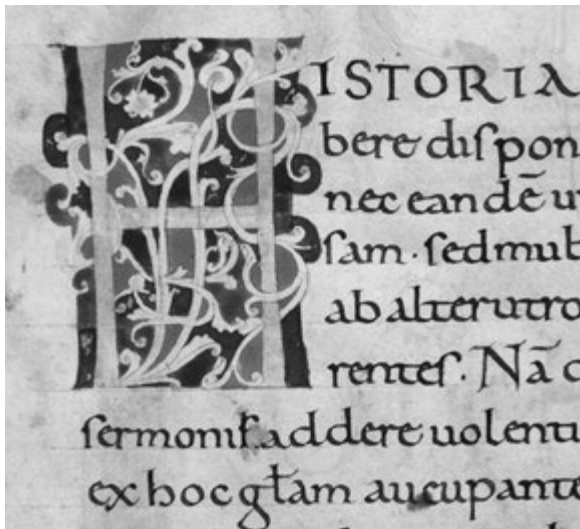 HISTORIA
bere diſpon
nec eandē u
ſam · ſed mul
ab alterutro
renteſ. Nā c
ſermoniſ addere uolenti
ex hoc głam aucupante